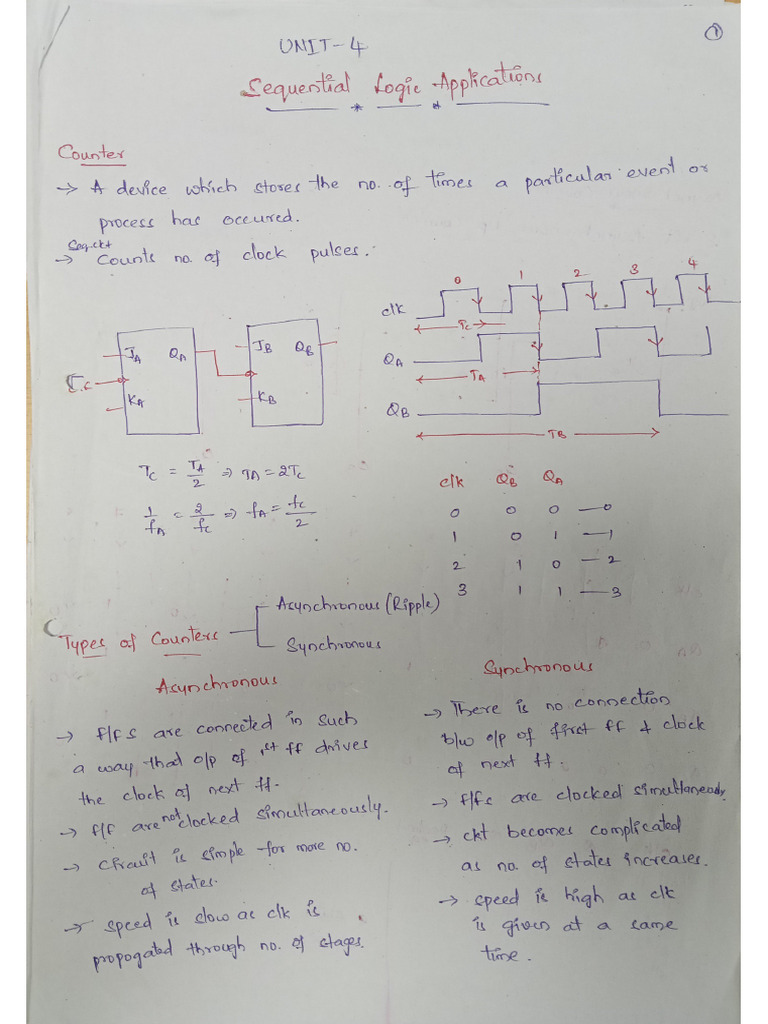 ①
UNIT-4
Sequential Logic Applications
Counter
→ A device which stores the no. of times a particular event or
process has occured.
Seq.ckt
→ Counts no. of clock pulses.
0 1 2 3 4
clk
Tc
QA
TA
QB
TB
JA QA JB QB
T.C
KA KB
Tc = TA/2 ⇒ TA = 2Tc
1/fA = 2/fc ⇒ fA = fc/2
clk QB QA
0 0 0 — 0
1 0 1 — 1
2 1 0 — 2
3 1 1 — 3
Types of Counters
Asynchronous (Ripple)
Synchronous
Asynchronous
→ f/fs are connected in such
a way that o/p of 1st ff drives
the clock of next ff.
→ f/f are not clocked simultaneously.
→ Circuit is simple for more no.
of states.
→ speed is slow as clk is
propogated through no. of stages.
Synchronous
→ There is no connection
b/w o/p of first ff & clock
of next ff.
→ f/fs are clocked simultaneously.
→ ckt becomes complicated
as no. of states increases.
→ speed is high as clk
is given at a same
time.